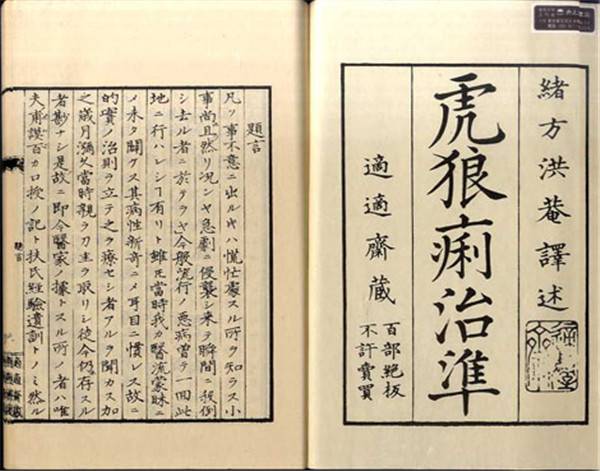 緒方洪菴譯述
虎狼痢治準
適適齋蔵
百部絶板
不許賣買
題言
凡ソ事不意ニ出ルヰハ慌忙處スル所ヲ知ラス小
事尚且然リ况ンヤ急劇ニ侵襲シ来テ瞬間ニ殺倒
シ去ル者ニ於テヲヤ今般流行ノ悪病曽テ一回此
地ニ行ハレシヿ有リト雖モ當時我カ醫流蒙昧ニ
〆未タ開ケス其病性新奇ニ〆耳目ニ慣レス故ニ
的實ノ治則ヲ立テ之ヲ療セシ者アルヲ聞カス加
之歳月瀰久當時親ラ刀圭ヲ取リシ徒今仍存スル
者尠ナシ是故ニ即今醫家ノ據トスル所ノ者ハ唯
夫甫謨百カ口授ノ記ト扶氏經驗遺訓トノミ然ル
題言